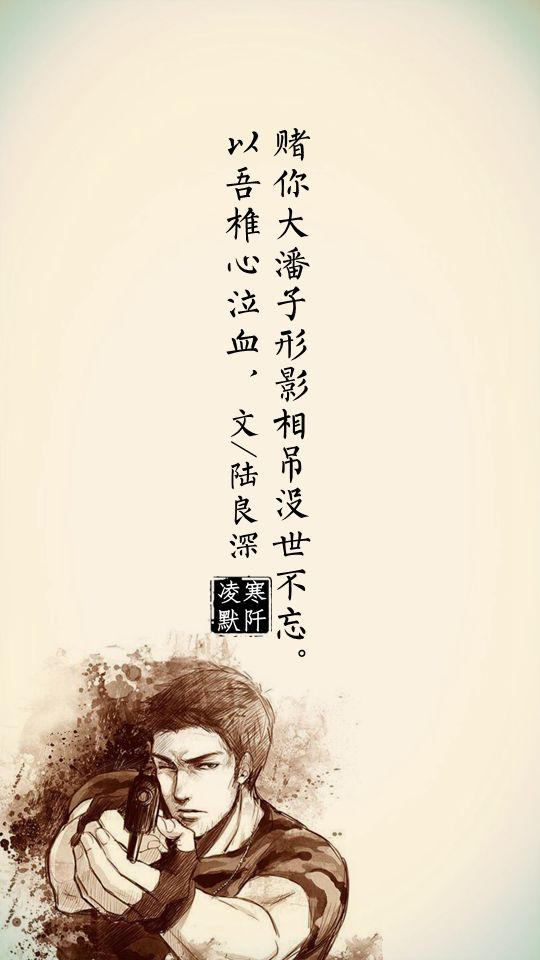 以吾椎心泣血，
赌你大潘子形影相吊没世不忘。
文/陆良深
寒阡
凌默